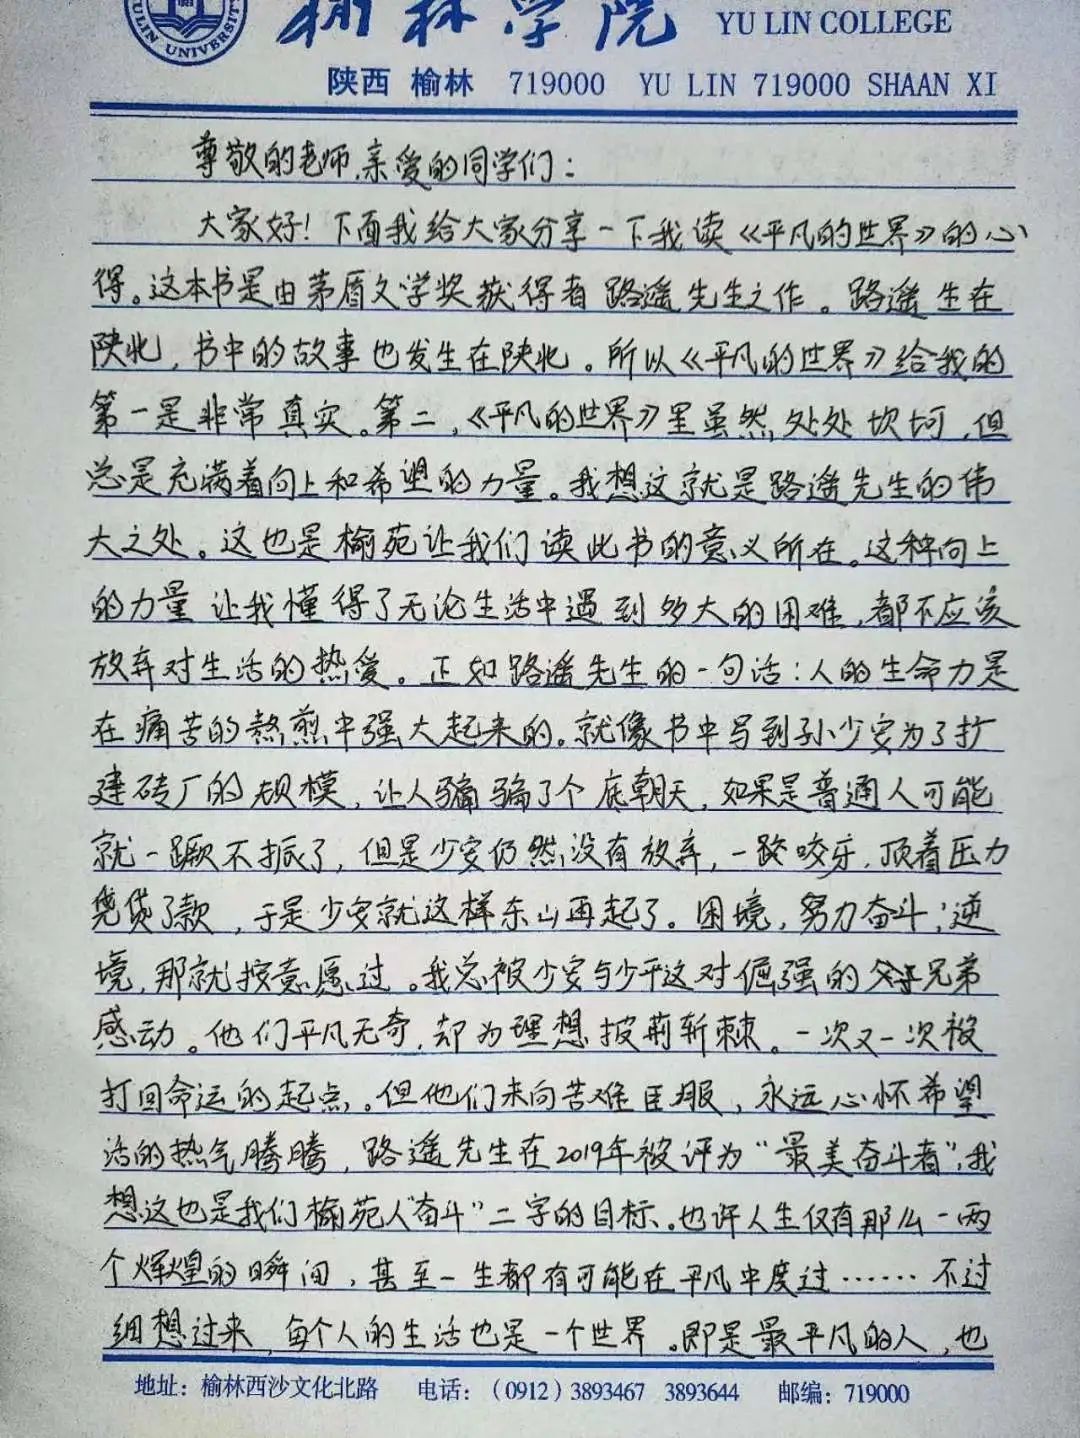 YULIN UNIVERSITY
榆林学院 YU LIN COLLEGE
陕西 榆林 719000 YU LIN 719000 SHAAN XI
尊敬的老师,亲爱的同学们:
大家好!下面我给大家分享一下我读《平凡的世界》的心
得。这本书是由茅盾文学奖获得者路遥先生之作。路遥生在
陕北,书中的故事也发生在陕北。所以《平凡的世界》给我的
第一是非常真实。第二,《平凡的世界》里虽然处处坎坷,但
总是充满着向上和希望的力量。我想这就是路遥先生的伟
大之处。这也是榆苑让我们读此书的意义所在。这种向上
的力量让我懂得了无论生活中遇到多大的困难,都不应该
放弃对生活的热爱。正如路遥先生的一句话:人的生命力是
在痛苦的熬煎中强大起来的。就像书中写到孙少安为了扩
建砖厂的规模,让人骗骗了个底朝天,如果是普通人可能
就一蹶不振了,但是少安仍然没有放弃,一路咬牙,顶着压力
凭贷了款,于是少安就这样东山再起了。困境,努力奋斗;逆
境,那就按意愿过。我总被少安与少平这对倔强的兄弟
感动。他们平凡无奇,却为理想披荆斩棘。一次又一次被
打回命运的起点。但他们未向苦难臣服,永远心怀希望
活的热气腾腾,路遥先生在2019年被评为“最美奋斗者”,我
想这也是我们榆苑人“奋斗”二字的目标。也许人生仅有那么一两
个辉煌的瞬间,甚至一生都有可能在平凡中度过……不过
细想过来,每个人的生活也是一个世界。即是最平凡的人,也
地址:榆林西沙文化北路 电话:(0912)3893467 3893644 邮编:719000